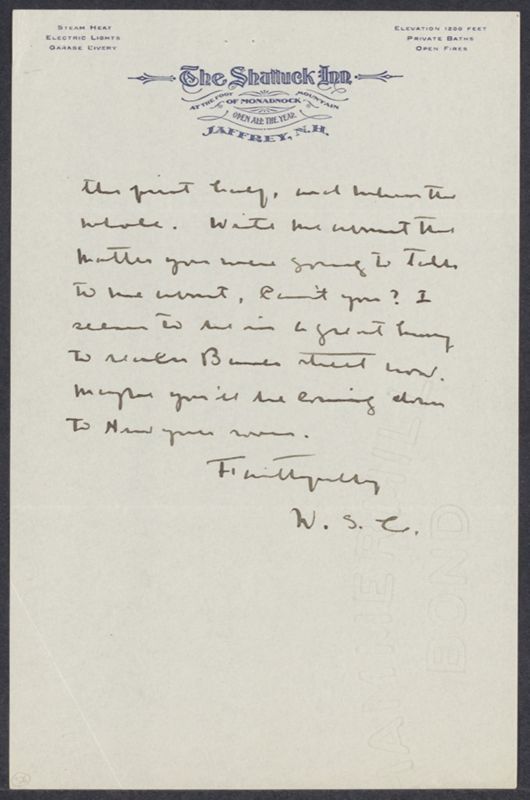 STEAM HEAT
ELECTRIC LIGHTS
GARAGE LIVERY
ELEVATION 1200 FEET
PRIVATE BATHS
OPEN FIRES
The Shattuck Inn
AT THE FOOT OF MONADNOCK MOUNTAIN
OPEN ALL THE YEAR
JAFFREY, N.H.
the first half, and the
whole. Write me about the
matter you were going to talk
to me about, can't you? I
seem to be in a great hurry
to reach Bank street now.
Maybe you'll be coming down
to New York soon.
Faithfully
W. S. C.
HAMMERMILL
BOND